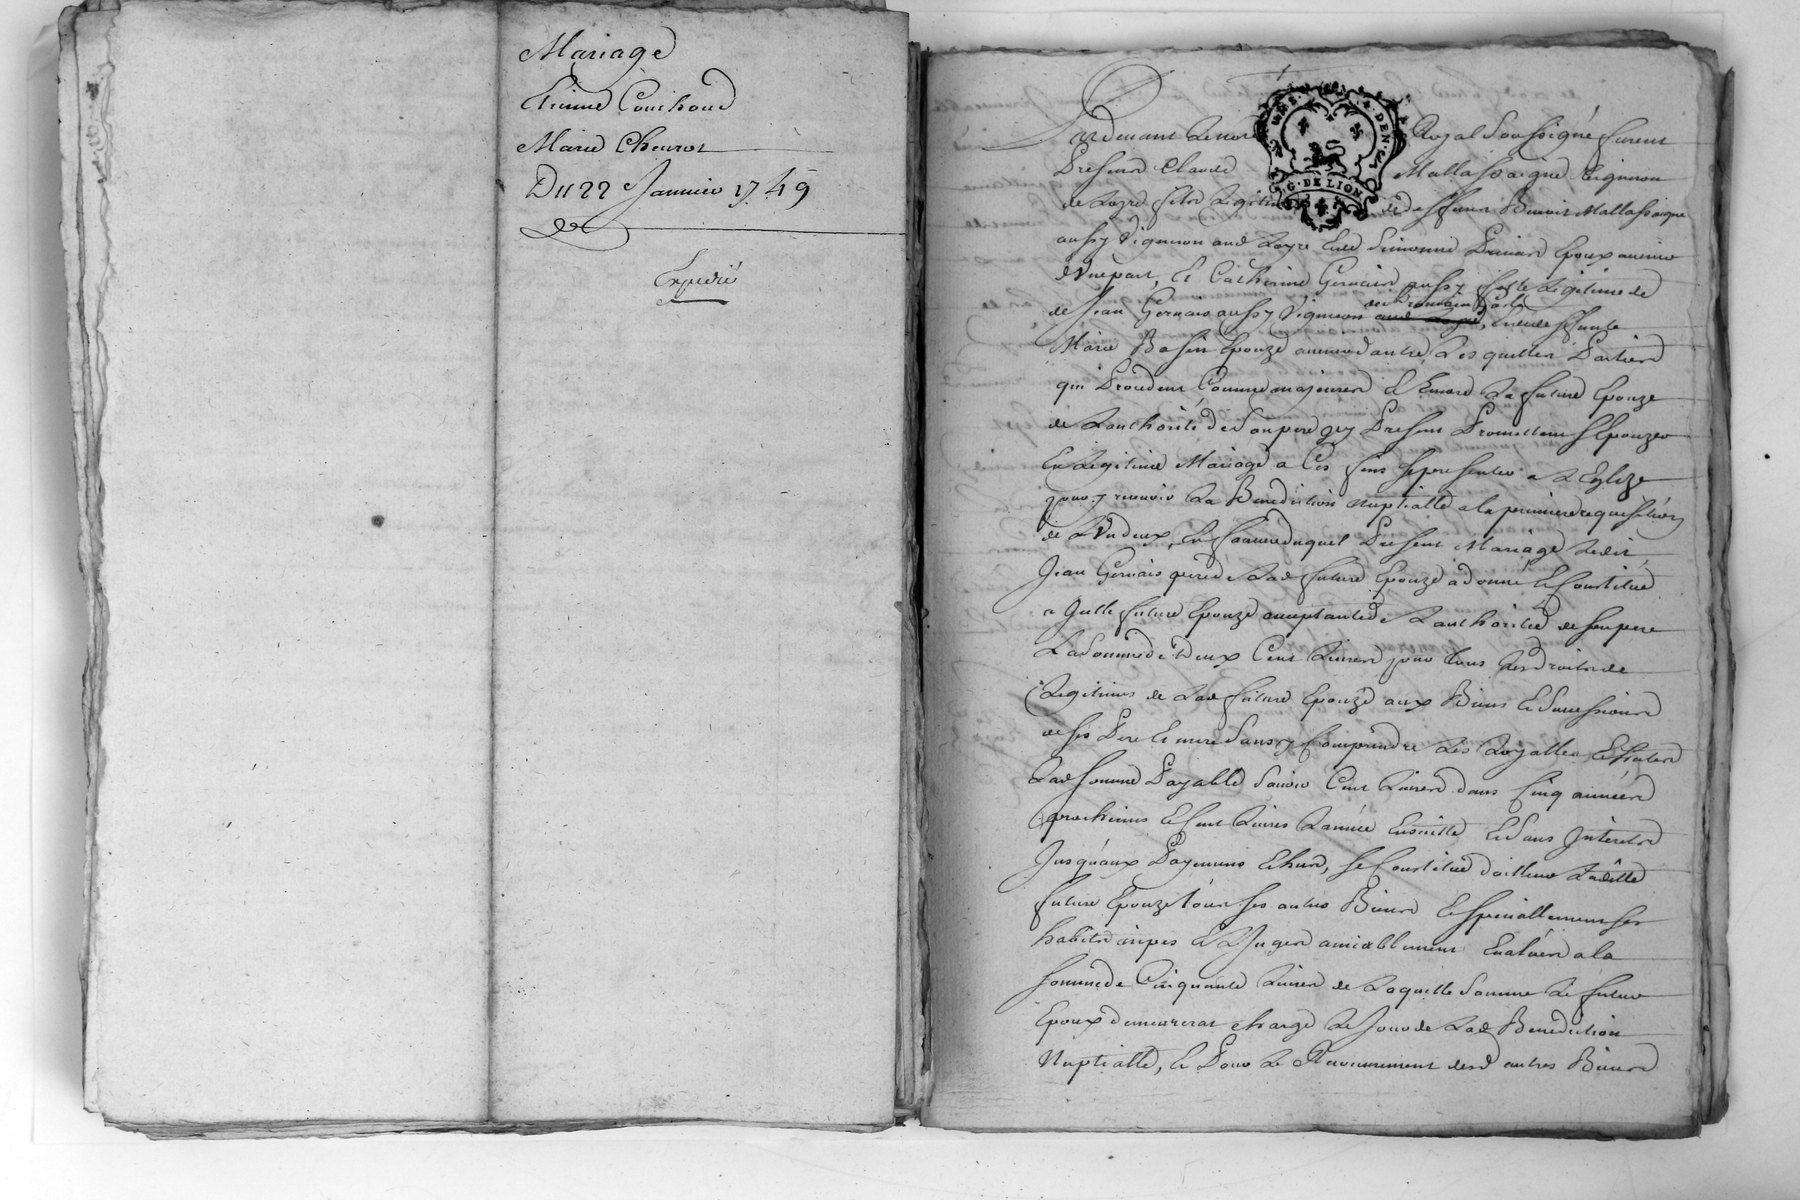 Mariage
Etienne Couchoud
Marie Cheurot
Du 22 Janvier 1749
Expedié
Pardevant Le nore Royal Soussigné furent
G. DE LION
Presens Claude Mallassaigne Vigneron
de Loyre fils Legitime de deffunt Benoit Mallassaigne
aussy Vigneron aud Loyre et de Simonne Epoux avenir
d'Une part, Et Catherine Gervais aussy fille Legitime de
de Jean Gervais aussy Vigneron et de deffunte
Marie Basin Epouze avenir d'autre, Lesquelles Parties
qui Procedent Comme majeures Et Encore La future Epouze
de L'authorité de Son pere icy Present Promettent S'Epouzer
En Legitime Mariage a Ces fins Se presenter a L'Eglize
pour y recevoir La Benediction Nuptialle a la premiere requisition
de L'Un deux, En faveur duquel Present Mariage Ledit
Jean Gervais pere de Lad future Epouze a donné Et Constitué
a Ycelle future Epouze acceptante de L'authorité de Son pere
La Somme de Deux Cent Livres pour tous Les droits de
Legitimes de Lad future Epouze aux Biens Et Successions
de Ses Pere Et mere Sans y Comprendre Les Loyalles Echutes
Lad Somme Payable Scavoir Cent Livres dans Cinq années
prochaines Et Cent Livres L'année Ensuitte Et Sans Interets
Jusqu'aux Payemens Echus, Se Constitue d'ailleurs Laditte
future Epouze tous Ses autres Biens Et Specialement Ses
habits nipes Et Linges amiablement Evalués a la
Somme de Cinquante Livres de Laquelle Somme Le futur
Epoux demeurerat chargé Le Jour de Lad Benediction
Nuptialle, Et Pour Le Recouvrement desd autres Biens